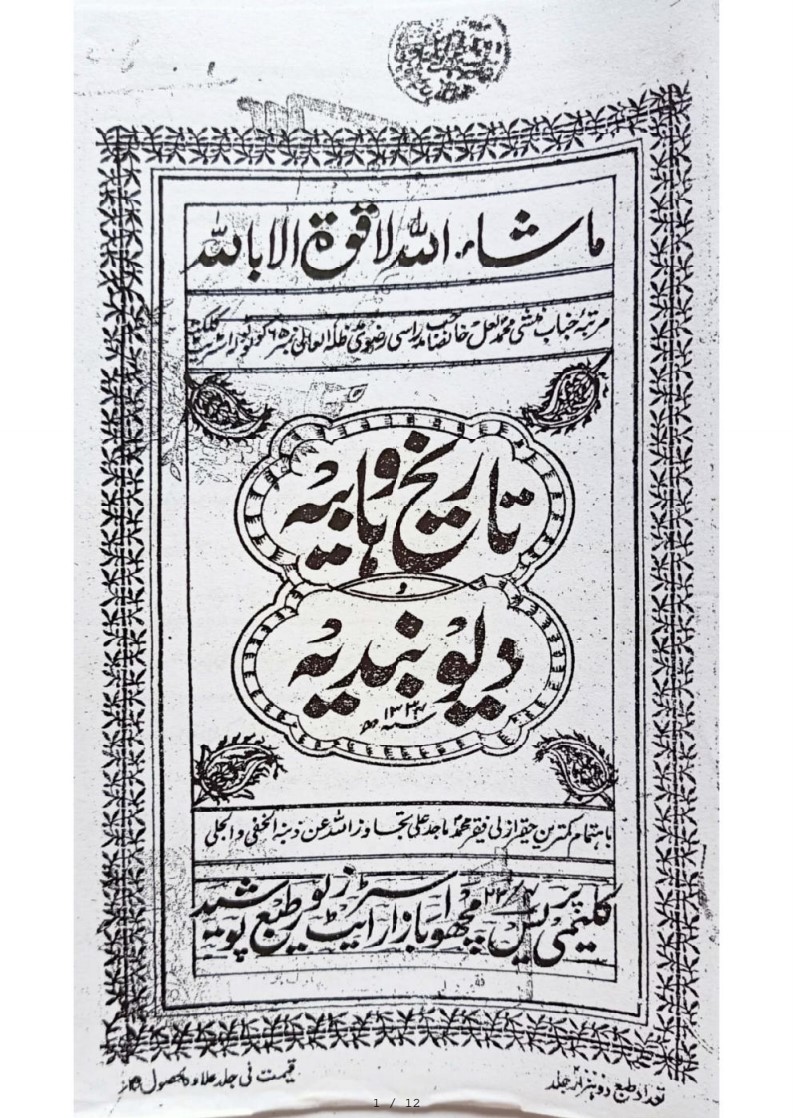 ماشاء اللہ لا قوۃ الا باللہ
مرتبۂ جناب منشی محمد لعل خانصاحب مدراسی رضوی مدظلہ العالی نمبر
تاریخ وہابیہ
و
دیوبندیہ
سنہ ۱۳۳۴ھ
باہتمام کمترین حقیر ازلی فقیر محمد ماجد علی تجاوز اللہ عن ذنبہ الخفی والجلی
کلیمی پریس مچھوا بازار اسٹریٹ طبع پوشید
تعداد طبع دو ہزار جلد
قیمت فی جلد علاوہ محصول
1 / 12